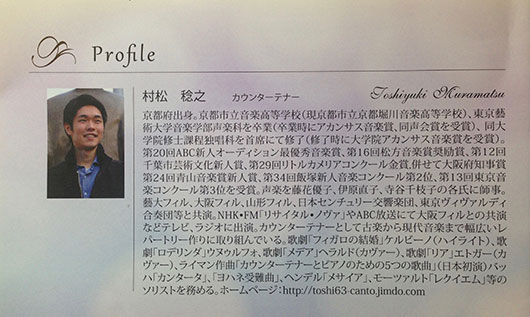 Profile
村松 稔之 カウンターテナー Toshiyuki Muramatsu
京都府出身。京都市立音楽高等学校(現京都市立京都堀川音楽高等学校)、東京藝
術大学音楽学部声楽科を卒業(卒業時にアカンサス音楽賞、同声会賞を受賞)、同大
学院修士課程独唱科を首席にて修了(修了時に大学院アカンサス音楽賞を受賞)。
第20回ABC新人オーディション最優秀音楽賞、第16回松方音楽賞奨励賞、第12回
千葉市芸術文化新人賞、第29回リトルカメリアコンクール金賞、併せて大阪府知事賞
第24回青山音楽賞新人賞、第34回飯塚新人音楽コンクール第2位、第13回東京音
楽コンクール第3位を受賞。声楽を藤花優子、伊原直子、寺谷千枝子の各氏に師事。
藝大フィル、大阪フィル、山形フィル、日本センチュリー交響楽団、東京ヴィヴァルディ
合奏団等と共演。NHK・FM「リサイタル・ノヴァ」やABC放送にて大阪フィルとの共演
などテレビ、ラジオに出演。カウンターテナーとして古楽から現代音楽まで幅広いレ
パートリー作りに取り組んでいる。歌劇「フィガロの結婚」ケルビーノ(ハイライト)、歌
劇「ロデリンダ」ウヌゥルフォ、歌劇「メデア」ヘラルド(カヴァー)、歌劇「リア」エトガー(カ
ヴァー)、ライマン作曲「カウンターテナーとピアノのための5つの歌曲」(日本初演)バッ
ハ「カンタータ」、「ヨハネ受難曲」、ヘンデル「メサイア」、モーツァルト「レクイエム」等の
ソリストを務める。ホームページ:http://toshi63-canto.jimdo.com